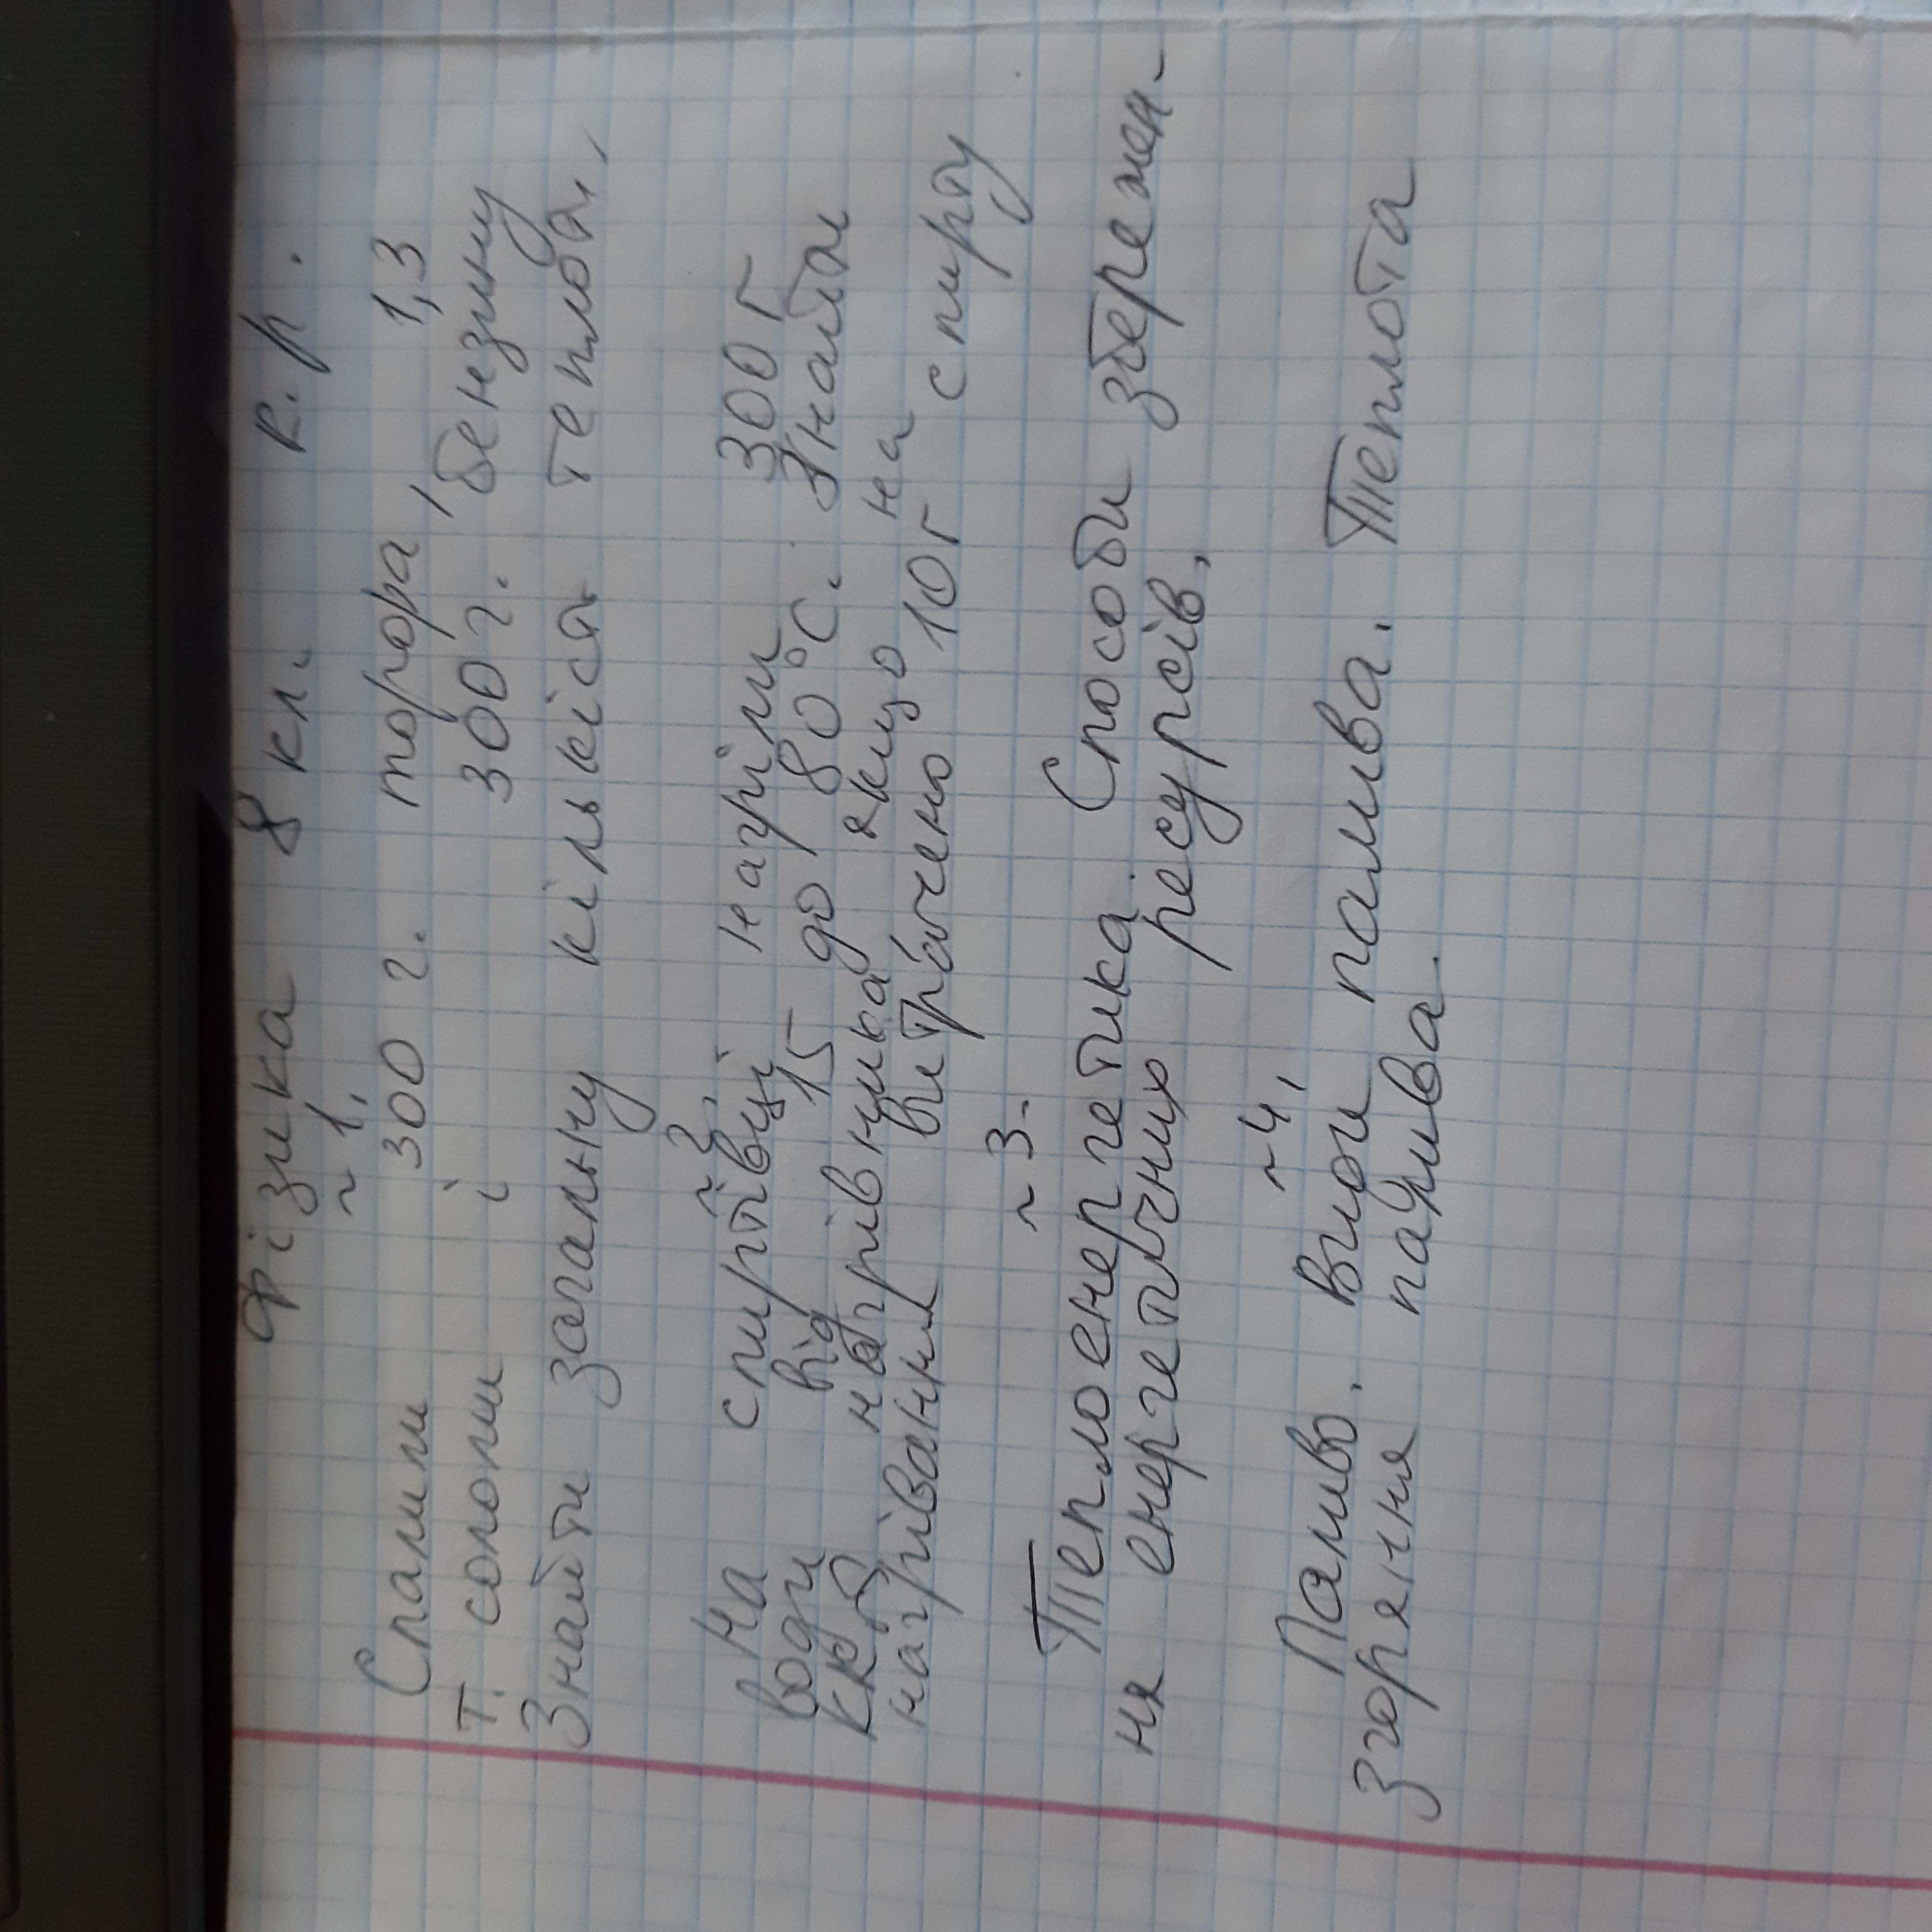 Фізика 8 кл. к.р.
~ 1.
Спалили 300 г. торфа, 1,3
т. соломи і 300 г. бензину
Знайти загальну кількість теплоти,
~ 2,
На спиртівці нагріли 300 г
води від 15 до 80°С. Знайти
ККД нагрівника якщо на
нагрівання витрачено 10 г спирту
~ 3.
Теплоенергетика. Способи збережен-
ня енергетичних ресурсів,
~ 4,
Паливо. Види палива. Теплота
згоряння палива.